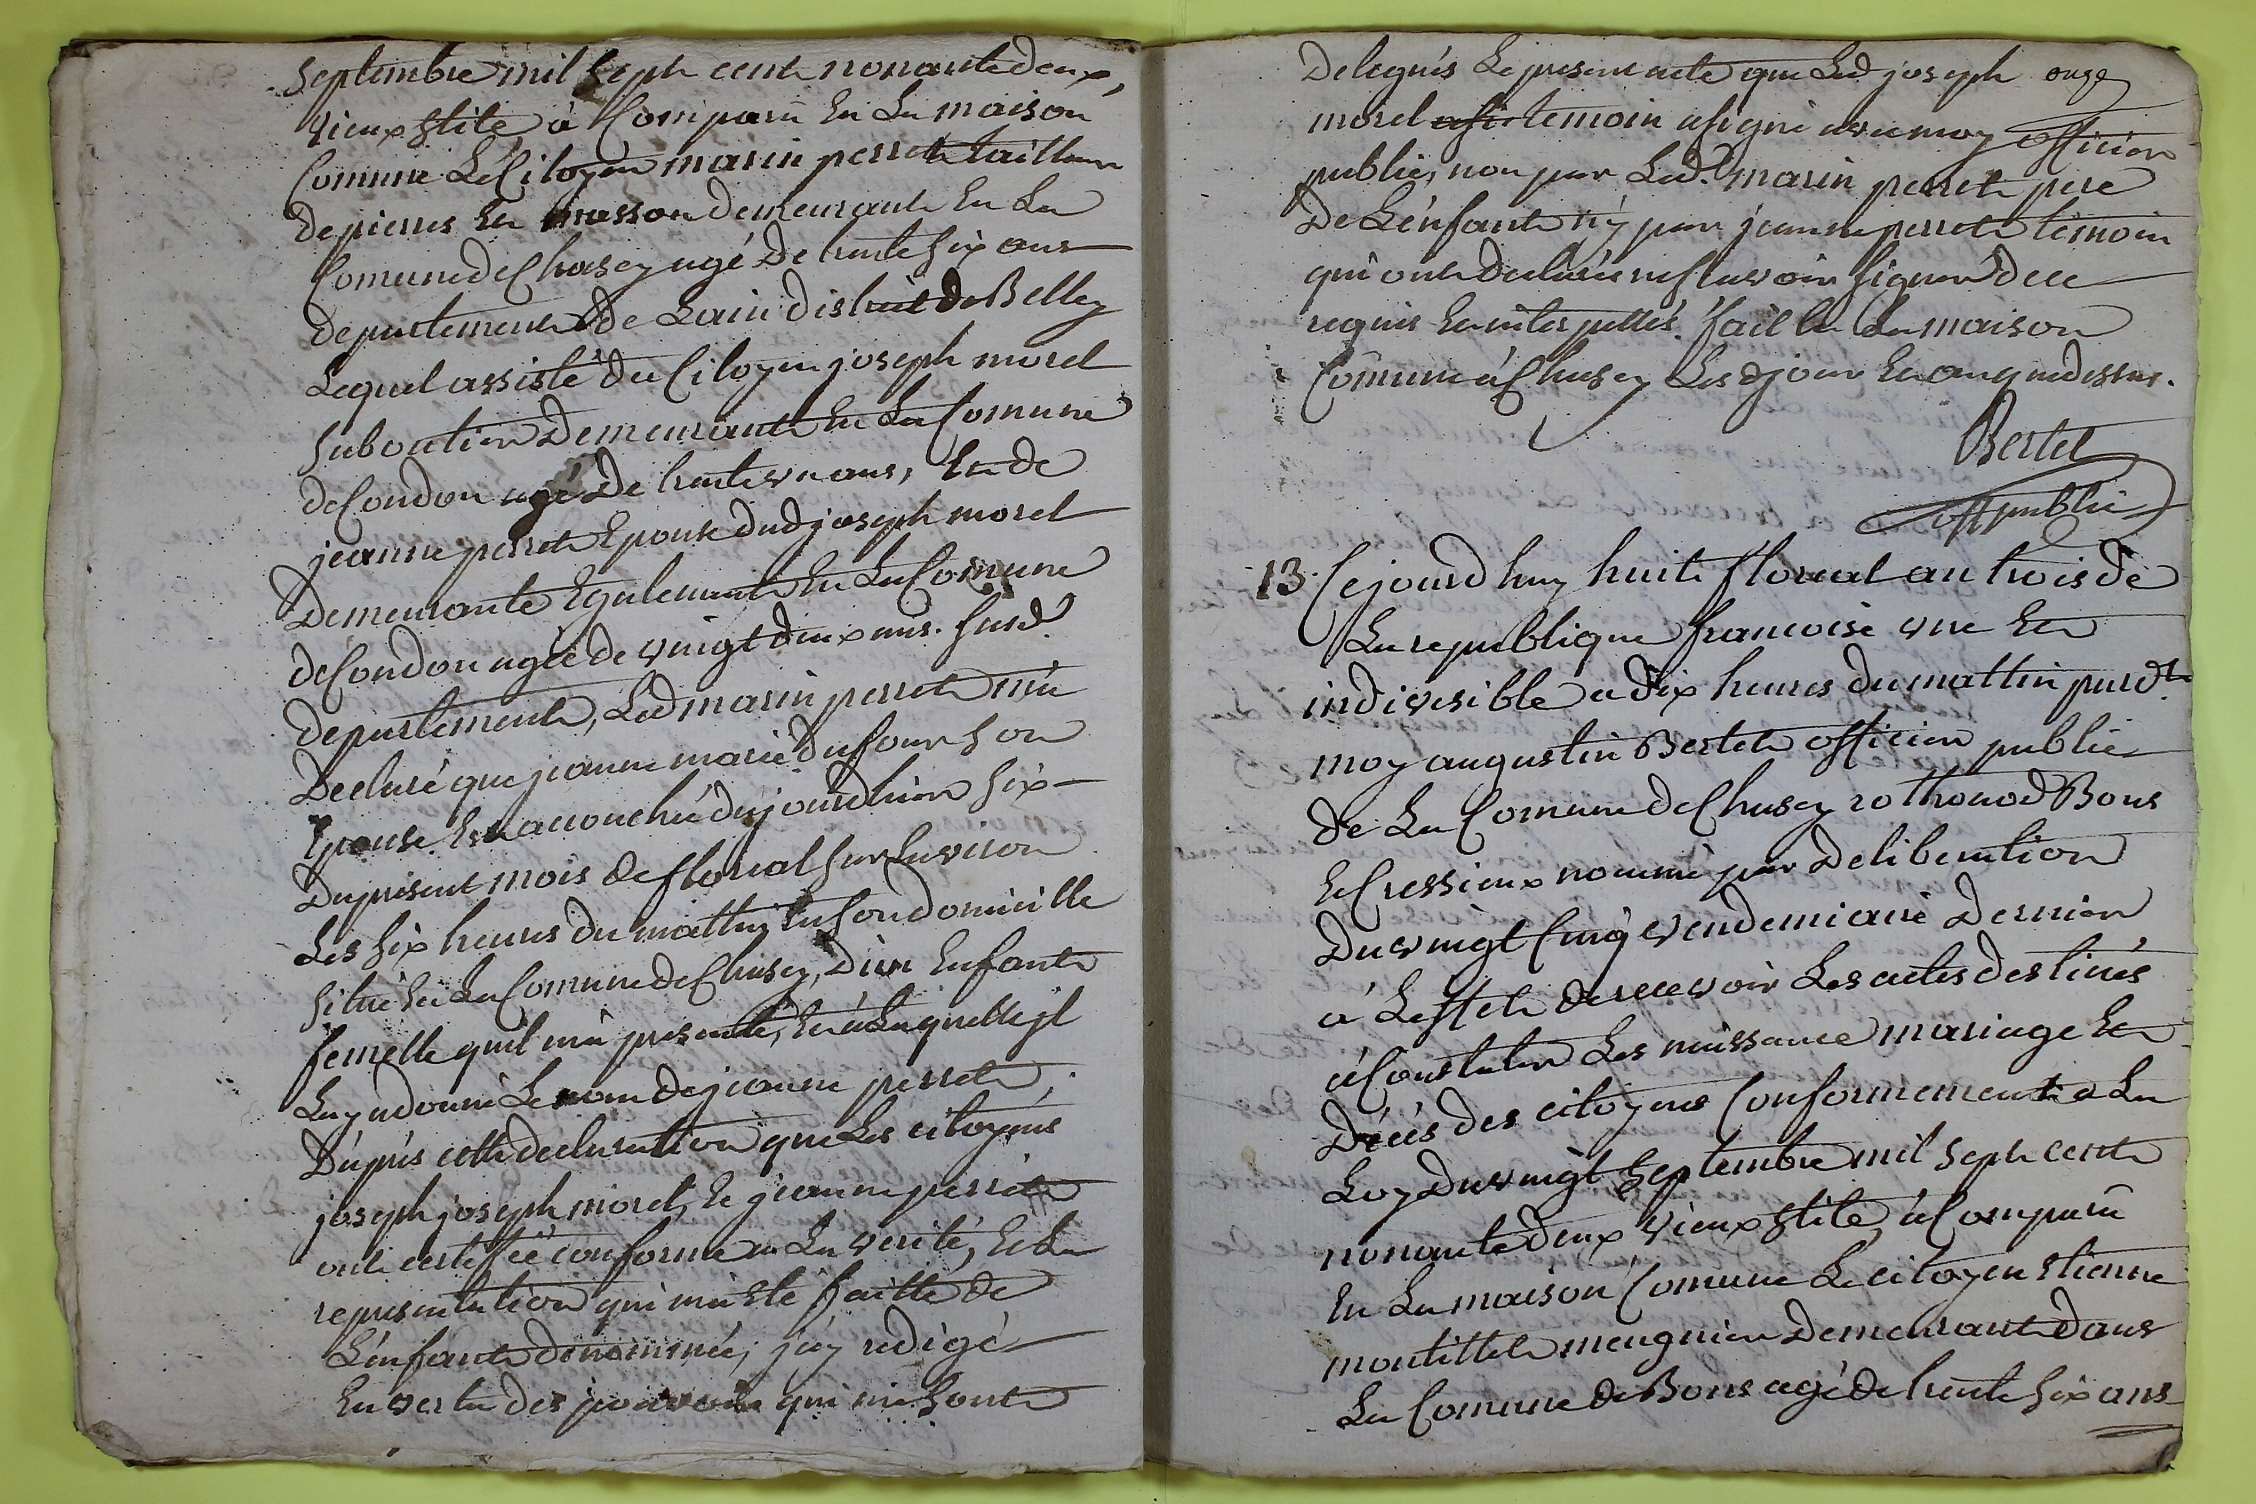 septembre mil sept cent nonante deux,
vieux stile à Comparu En La maison
Comune Le Citoyen marin perret tailleur
de pierres Et masson demeurant En La
Comune de Chasey agé de trente six ans
departement de Lain district de Belley
Lequel assisté du Citoyen joseph morel
Demeurant En La Comune
de Condon agé de trente un ans, Et de
jeanne perret Epouse dud joseph morel
Demeurante Egalement En La Comune
de Condon agée de vingt deux ans. susd.
departement, Led marin perret m'a
Declaré que jeanne marie dufour son
Epouse Est accouchée dujourdhier six
Du present mois de floreal sur Lenviron
Les six heures du mattin En son domicille
situé En La Comune de Chasey, D'un Enfant
femelle quil m'a presenté, Et à Laquelle jl
Luy a donné Le nom de jeanne perret,
D'après cette declaration que Les citoyens
joseph joseph morel, Et jeanne perret
ont certiffié conforme a La verité, Et La
representation qui m'a Eté faitte de
L'enfant denommée, j'ay redigé
En vertu des pouvoir qui me sont
Delegués Le present acte que Led joseph
morel temoin a signé avec moy officier
public, non par Led. marin perret pere
De L'enfant n'y par jeanne perret temoin
qui ont declarés ne scavoir signer de ce
requis Et interpellés. fait En La maison
Comune à Chasey Les d jour Et an que dessus.
Bertet
off public
13. Cejourdhuy huit floreal an trois de
La republique francoise une Et
indivisible a dix heures du mattin pard.t
moy augustin Bertet officier public
de La Comune de Chasey rothonod Bons
Et Cressieux nommé par Deliberation
Du vingt Cinq vendemiaire Dernier
à Leffet de recevoir Les actes destinés
à Constater Les naissance mariage Et
Décés des citoyens Conformement a La
Loy Du vingt septembre mil sept cent
nonante deux vieux stile, à Comparu
En La maison Comune Le citoyen Etienne
montillet meugnier Demeurant dans
La Comune de Bons agé de trente six ans